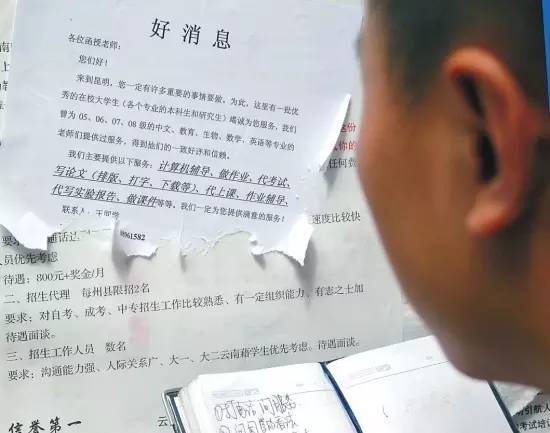 好 消 息
各位函授老师：
您们好！
来到昆明，您一定有许多重要的事情要做，为此，这里有一批优
秀的在校大学生（各个专业的本科生和研究生）竭诚为您服务，我们
曾为 05、06、07、08 级的中文、教育、生物、数学、英语等专业的
老师们提供过服务，得到他们的一致好评和信赖。
我们主要提供以下服务：计算机辅导、做作业、代考试、
写论文（排版、打字、下载等）、代上课、作业辅导、
代写实验报告、做课件等等，我们一定为您提供满意的服务！
联系人：王同学
8061582
速度比较快
人员优先考虑
待遇：800元+奖金/月
二、招生代理 每州县限招2名
要求：对自考、成考、中专招生工作比较熟悉、有一定组织能力、有志之士加
待遇面谈。
三、招生工作人员 数名
要求：沟通能力强、人际关系广、大一、大二云南藉学生优先考虑。待遇面谈。
信誉第一
云